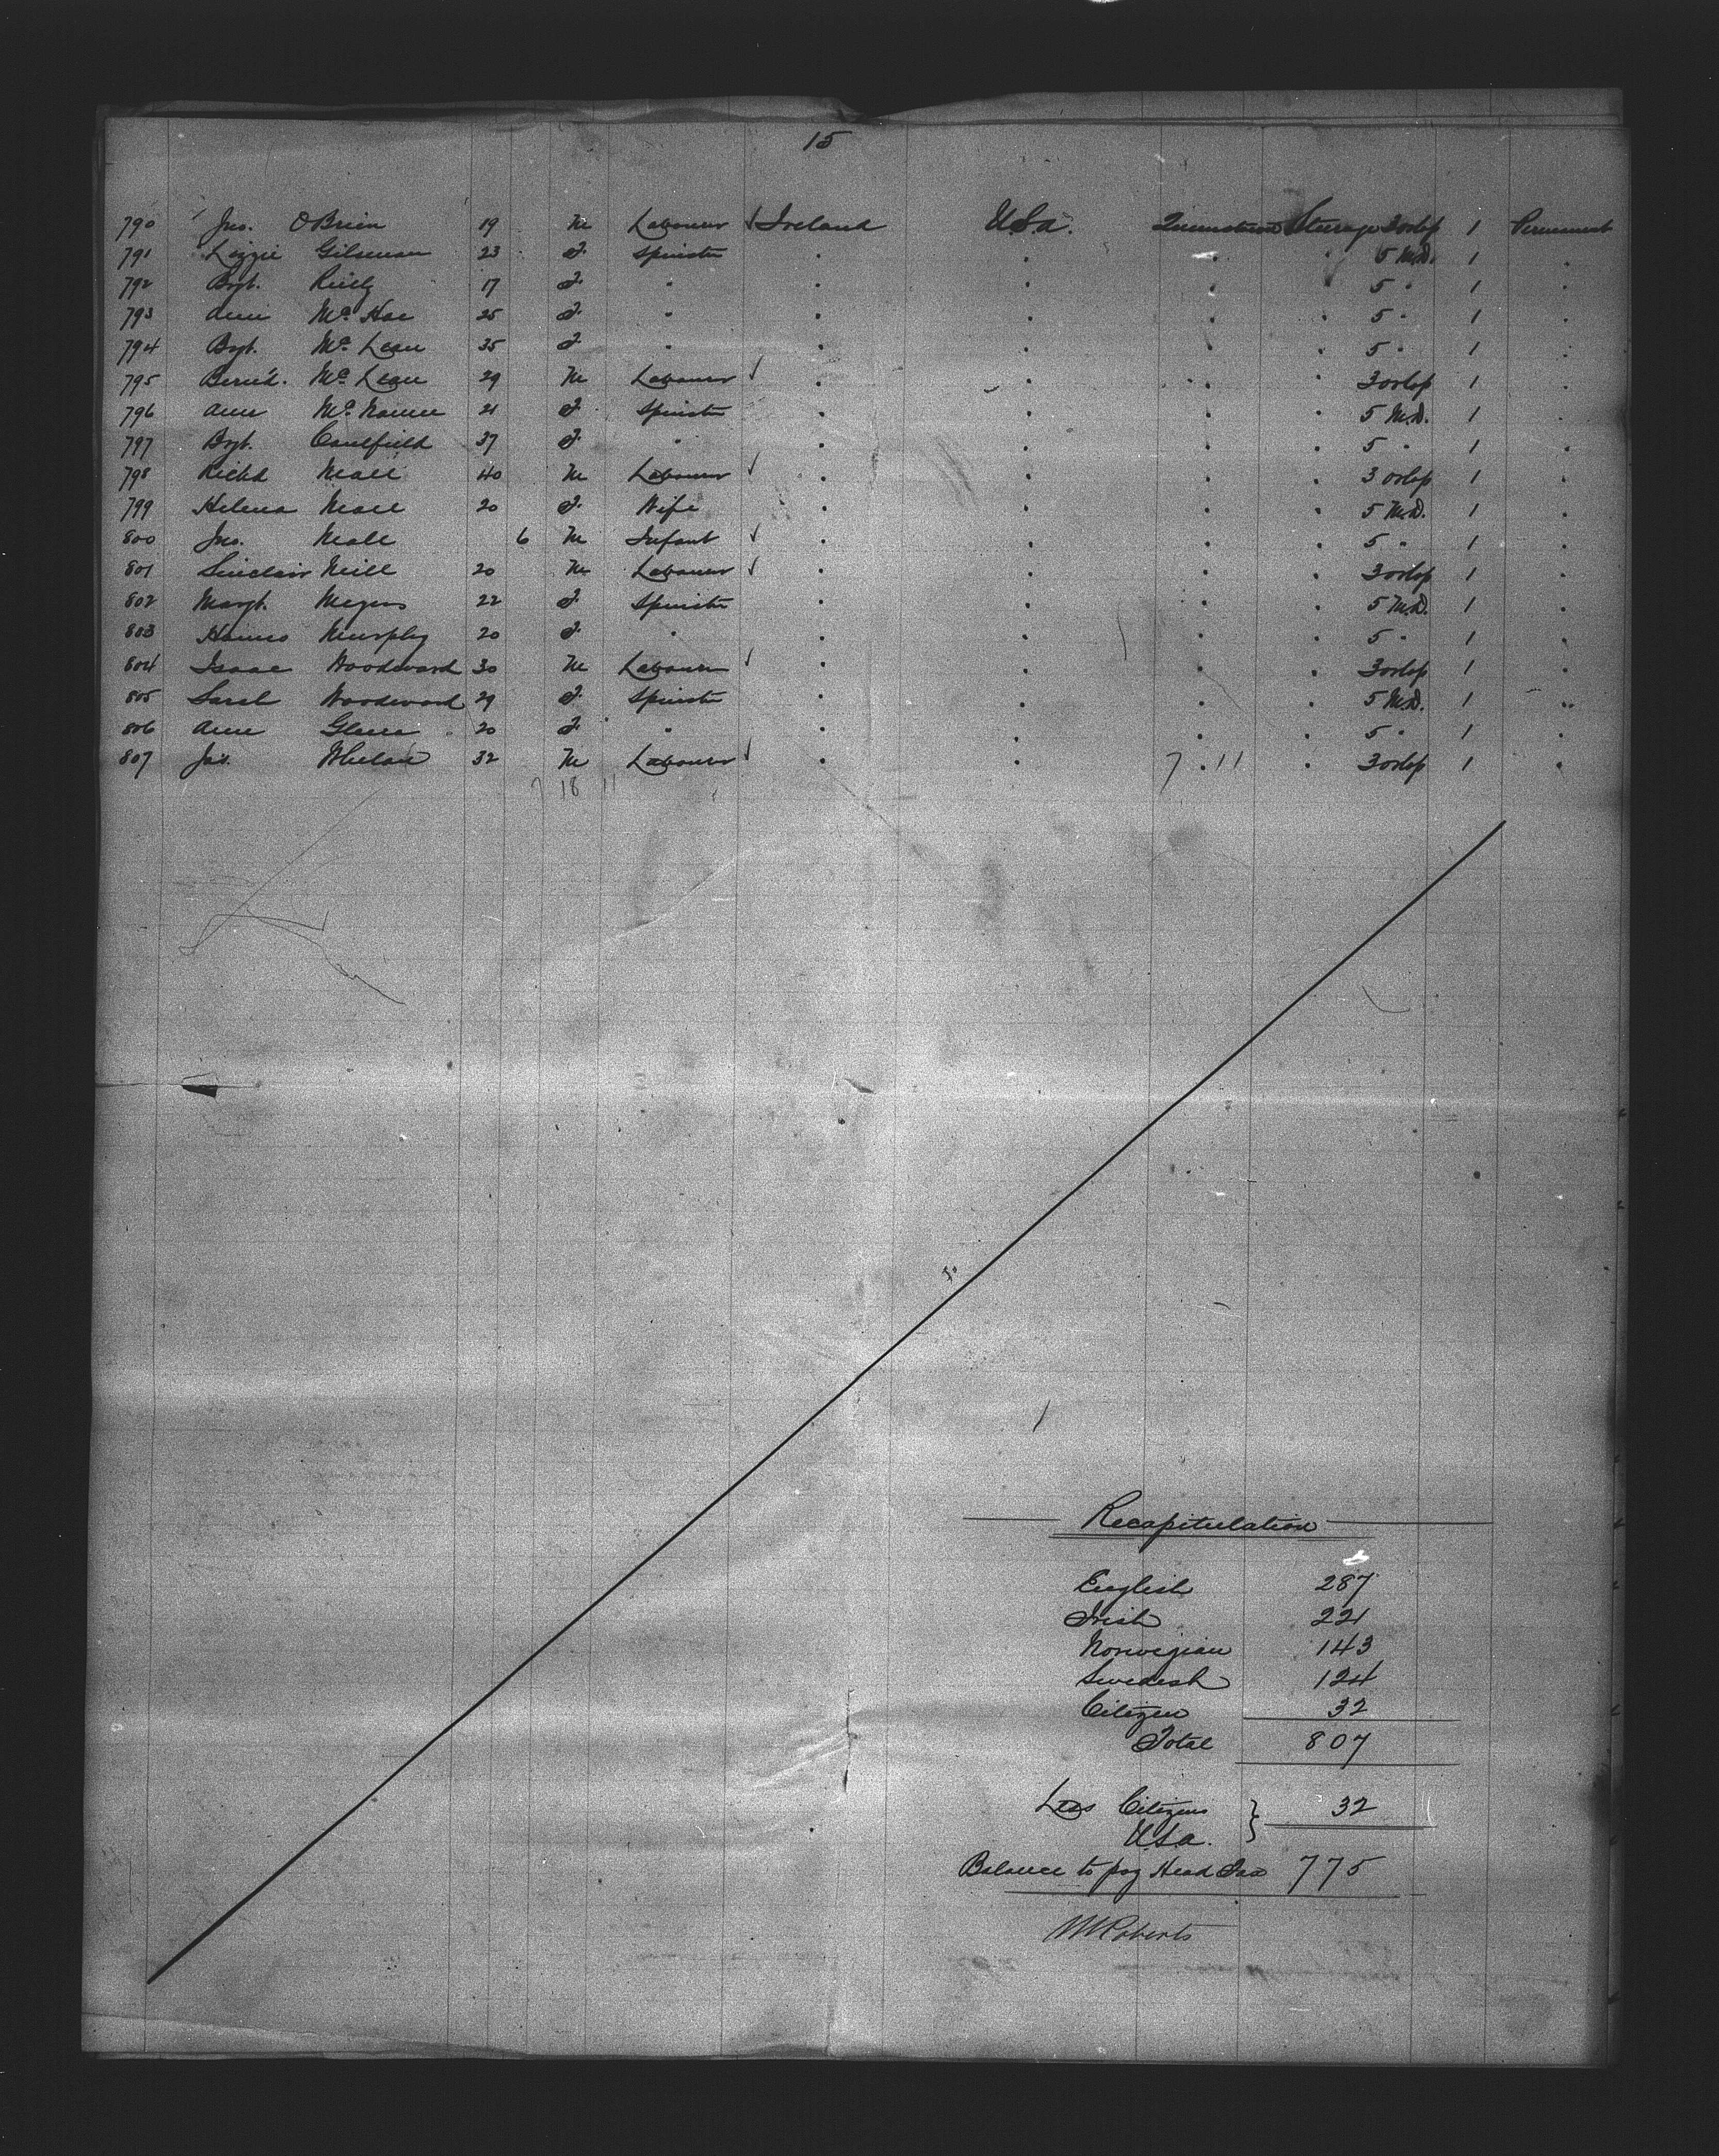 15
790 Jno. O'Brien 19 M Labourer ✓ Ireland U.S.a. Queenstown Steerage 3 orlop 1 Permanent
791 Lizzie Gilsenan 23 F. Spinster . . . . 5 M.D. 1 .
792 Bgt. Reilly 17 F. " . . . 5 " 1 .
793 Ann Mc. 25 F. " . . . . 5 " 1 .
794 Bgt. Mc. Lean 35 F " . . . . 5 " 1 .
795 Bern'd. Mc. Lean 29 M Labourer ✓ . . . . 3 orlop 1 .
796 Ann Mc. Namee 21 F. Spinster . . . . 5 M.D. 1 .
797 Bgt. Caulfield 37 F. " . . . . 5 " 1 .
798 Richd Neale 40 M Labourer ✓ . . . . 3 orlop 1 .
799 Helena Neale 20 F. Wife . . . . 5 M.D. 1 .
800 Jno. Neale 6 M Infant ✓ . . . . 5 " 1 .
801 Sinclair Neill 20 M Labourer ✓ . . . . 3 orlop 1 .
802 Margt. 22 F. Spinster . . . . 5 M.D. 1 .
803 Murphy 20 F. " . . . . 5 " 1 .
804 Isaac Woodward 30 M Labourer ✓ . . . . 3 orlop 1 .
805 Sarah Woodward 29 F. Spinster . . . . 5 M.D. 1 "
806 Ann 20 F. " . . . . 5 " 1 .
807 Jas. Whelan 32 M Labourer ✓ . . 7 . 11 . 3 orlop 1 .
7 18 11
Recapitulation
English 287
Irish 221
Norwegian 143
Swedish 124
Citizen 32
Total 807
Less Citizens } 32
U.S.a.
Balance to pay Head Tax 775
Roberts